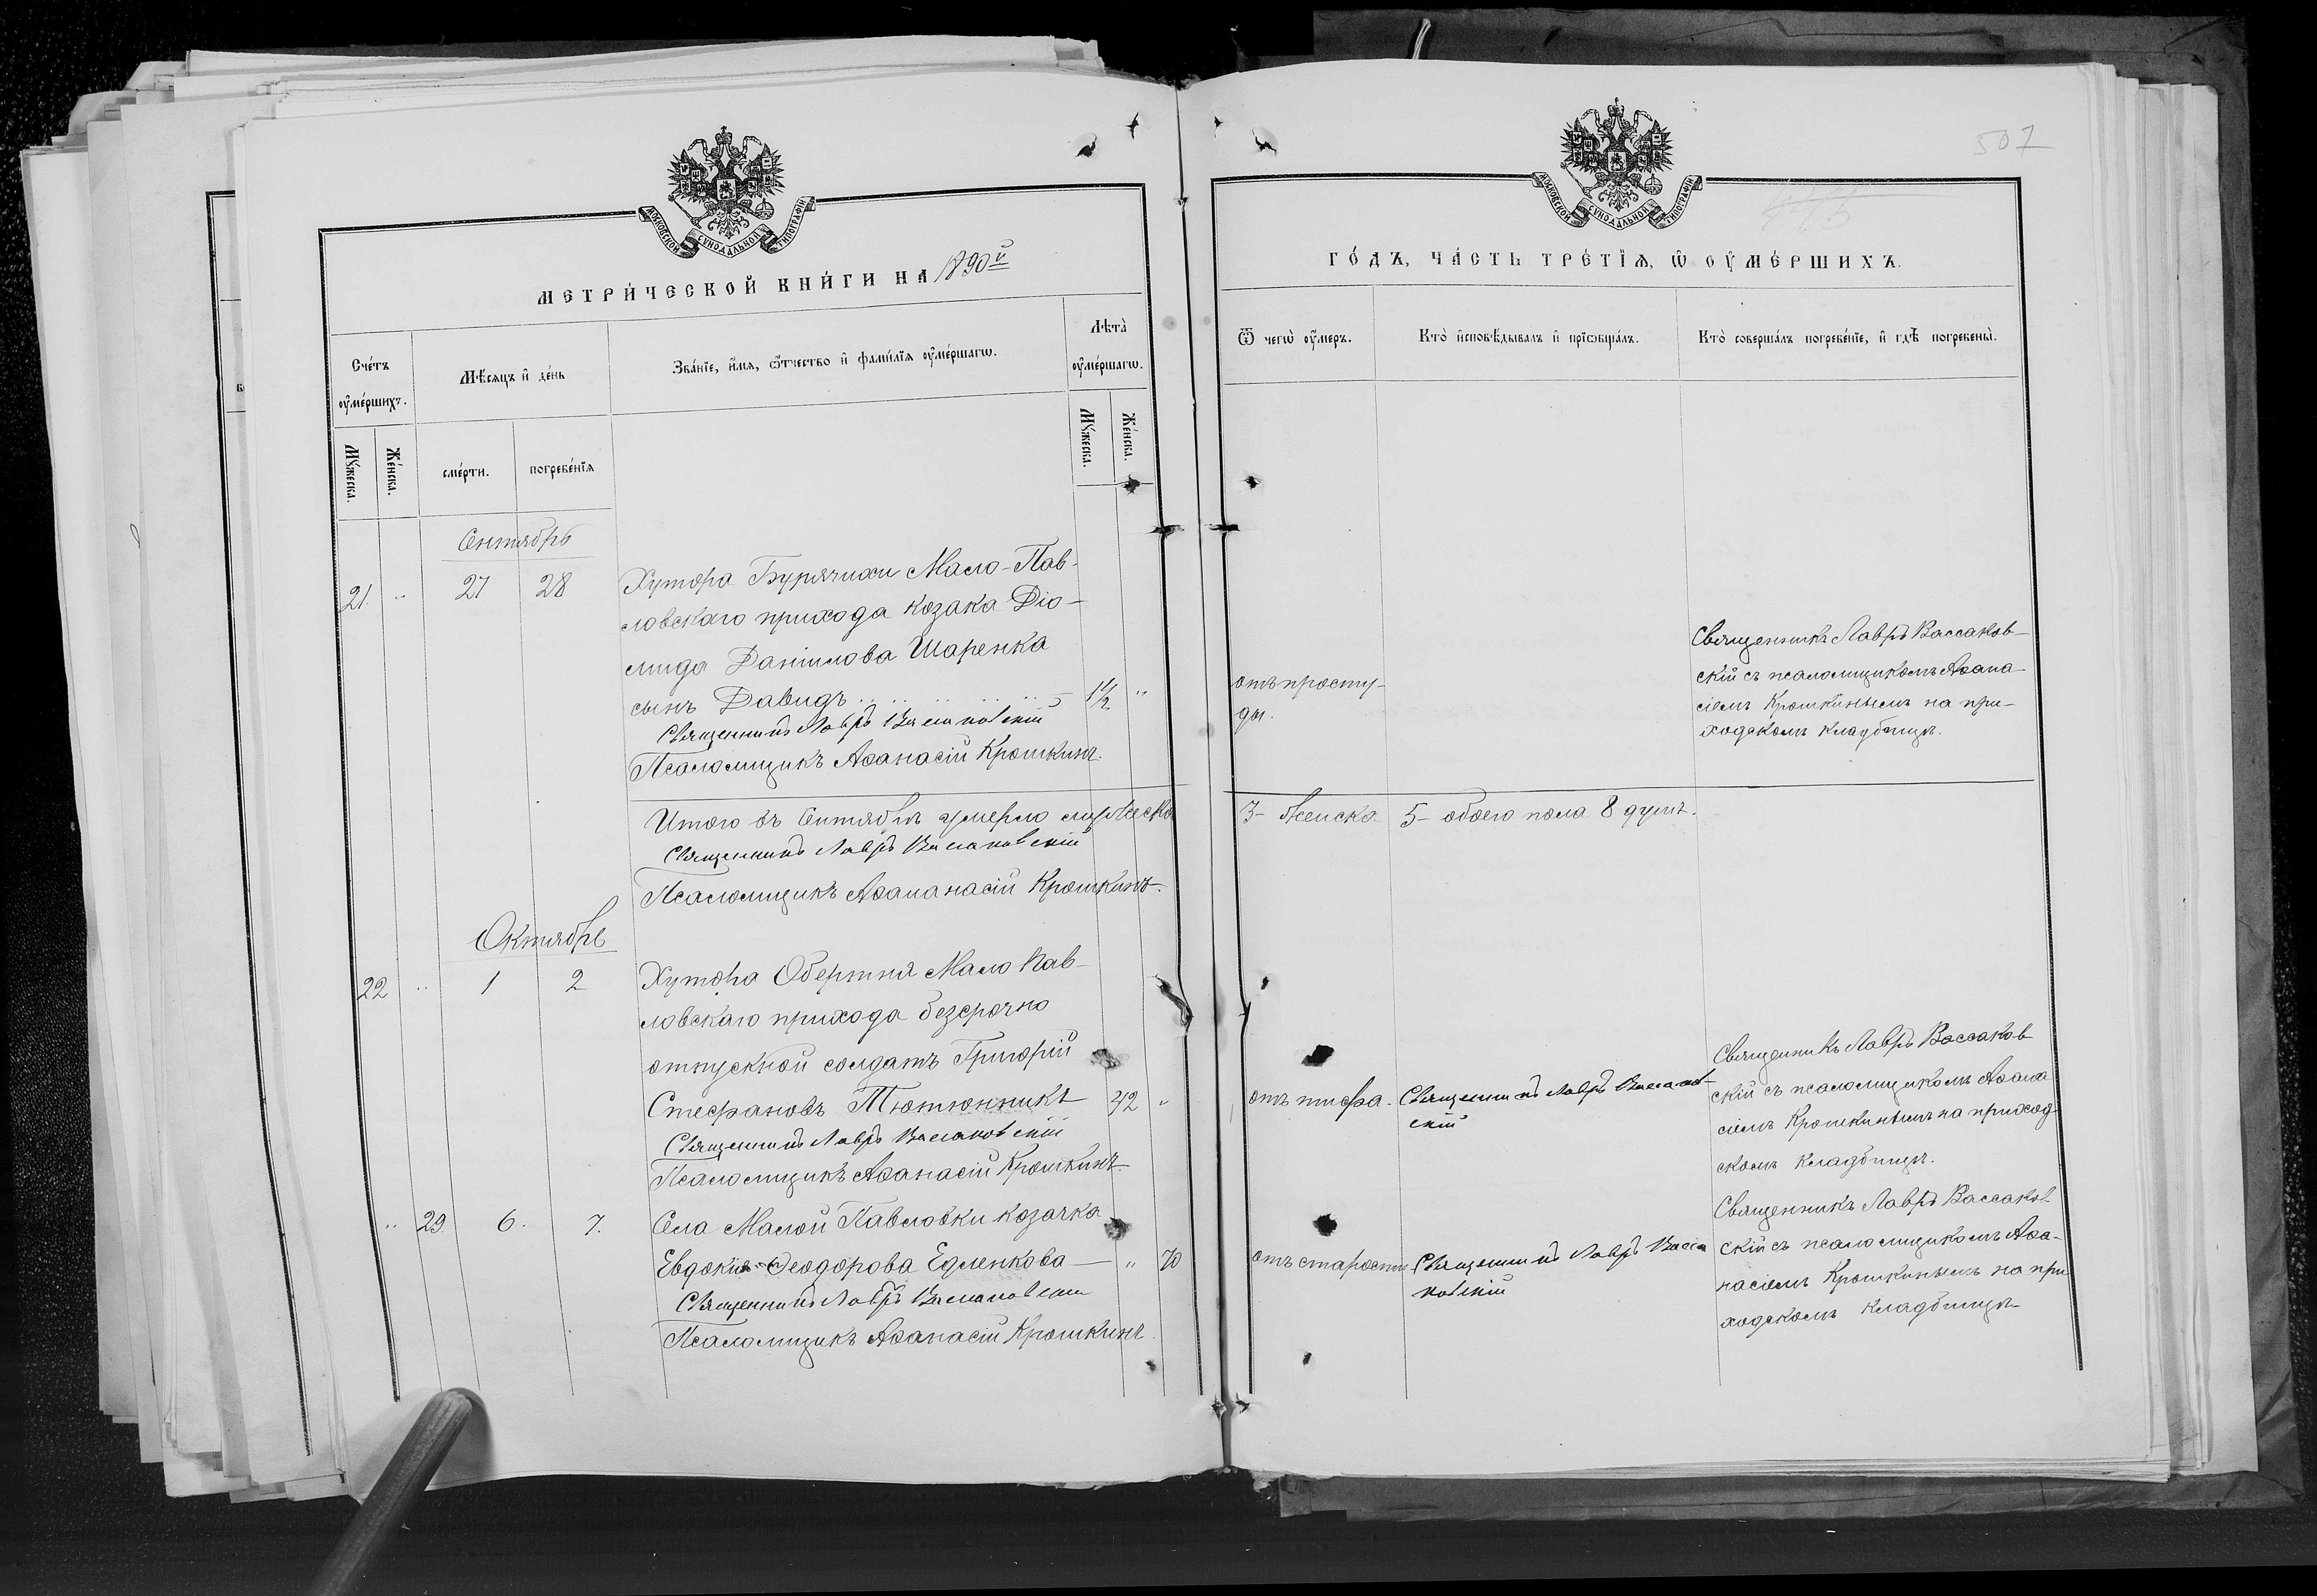 МОСКОВСКОЙ СУНОДАЛЬНОЙ ТИПОГРАФІИ
МЕТРИ́ЧЕСКОЙ КНИ́ГИ НА 1890й
Сче́тъ ѹ҆ме́ршихъ.
Мѣ́сяцъ и҆ де́нь
Зва́нїе, и҆́мѧ, ѻ҆́тчество и҆ фами́лїѧ ѹ҆ме́ршагѡ.
Лѣта̀ ѹ҆ме́ршагѡ.
Мѹ́жеска.
Же́нска.
сме́рти.
погребе́нїѧ
Мѹ́жеска.
Же́нска.
Сентябрь
21. " 27 28 Хутора Бурячихи Мало-Пав-
ловскаго прихода козака Діо-
мида Даніилова Шаренка
сынъ Давидъ 1½ "
Священникъ Лавръ Вассаковскій
Псаломщикъ Аѳанасій Крошкинъ.
Итого въ Сентябрѣ умерло мужеска
Священникъ Лавръ Вассаковскій
Псаломщикъ Аѳананасій Крошкинъ.
Октябрь
22 " 1 2 Хутора Обертня Мало Пав-
ловскаго прихода безсрочно
отпускной солдатъ Григорій
Стефановъ Тютюнникъ 42 "
Священникъ Лавръ Вассаковскій
Псаломщикъ Аѳанасій Крошкинъ
" 29. 6. 7. Села Малой Павловки козачка
Евдокія Ѳеодорова Едменкова — " 70
Священникъ Лавръ Вассаковскій
Псаломщикъ Аѳанасій Крошкинъ.
507
МОСКОВСКОЙ СУНОДАЛЬНОЙ ТИПОГРАФІИ
ГО́ДЪ, ЧА́СТЬ ТРЕ́ТЇѦ, Ѡ҆ ОУ҆МЕ́РШИХЪ.
Ѿ чегѡ̀ ѹ҆́меръ.
Кто̀ и҆сповѣ́дывалъ и҆ прїѡбща́лъ.
Кто̀ соверша́лъ погребе́нїе, и҆ гдѣ̀ погребены̀.
отъ просту-
ды.
Священникъ Лавръ Вассаков-
скій съ псаломщикомъ Аѳана-
сіемъ Крошкинымъ на при-
ходскомъ кладбищѣ.
3- Женска 5- обоего пола 8 душъ.
отъ тифа.
Священникъ Лавръ Вассаков-
скій
Священникъ Лавръ Вассаков
скій съ псаломщикомъ Аѳана
сіемъ Крошкинымъ на приход
скомъ кладбищѣ.
отъ старости
Священникъ Лавръ Васса
ковскій
Священникъ Лавръ Вассаков
скій съ псаломщикомъ Аѳа-
насіемъ Крошкинымъ на при
ходскомъ кладбищѣ